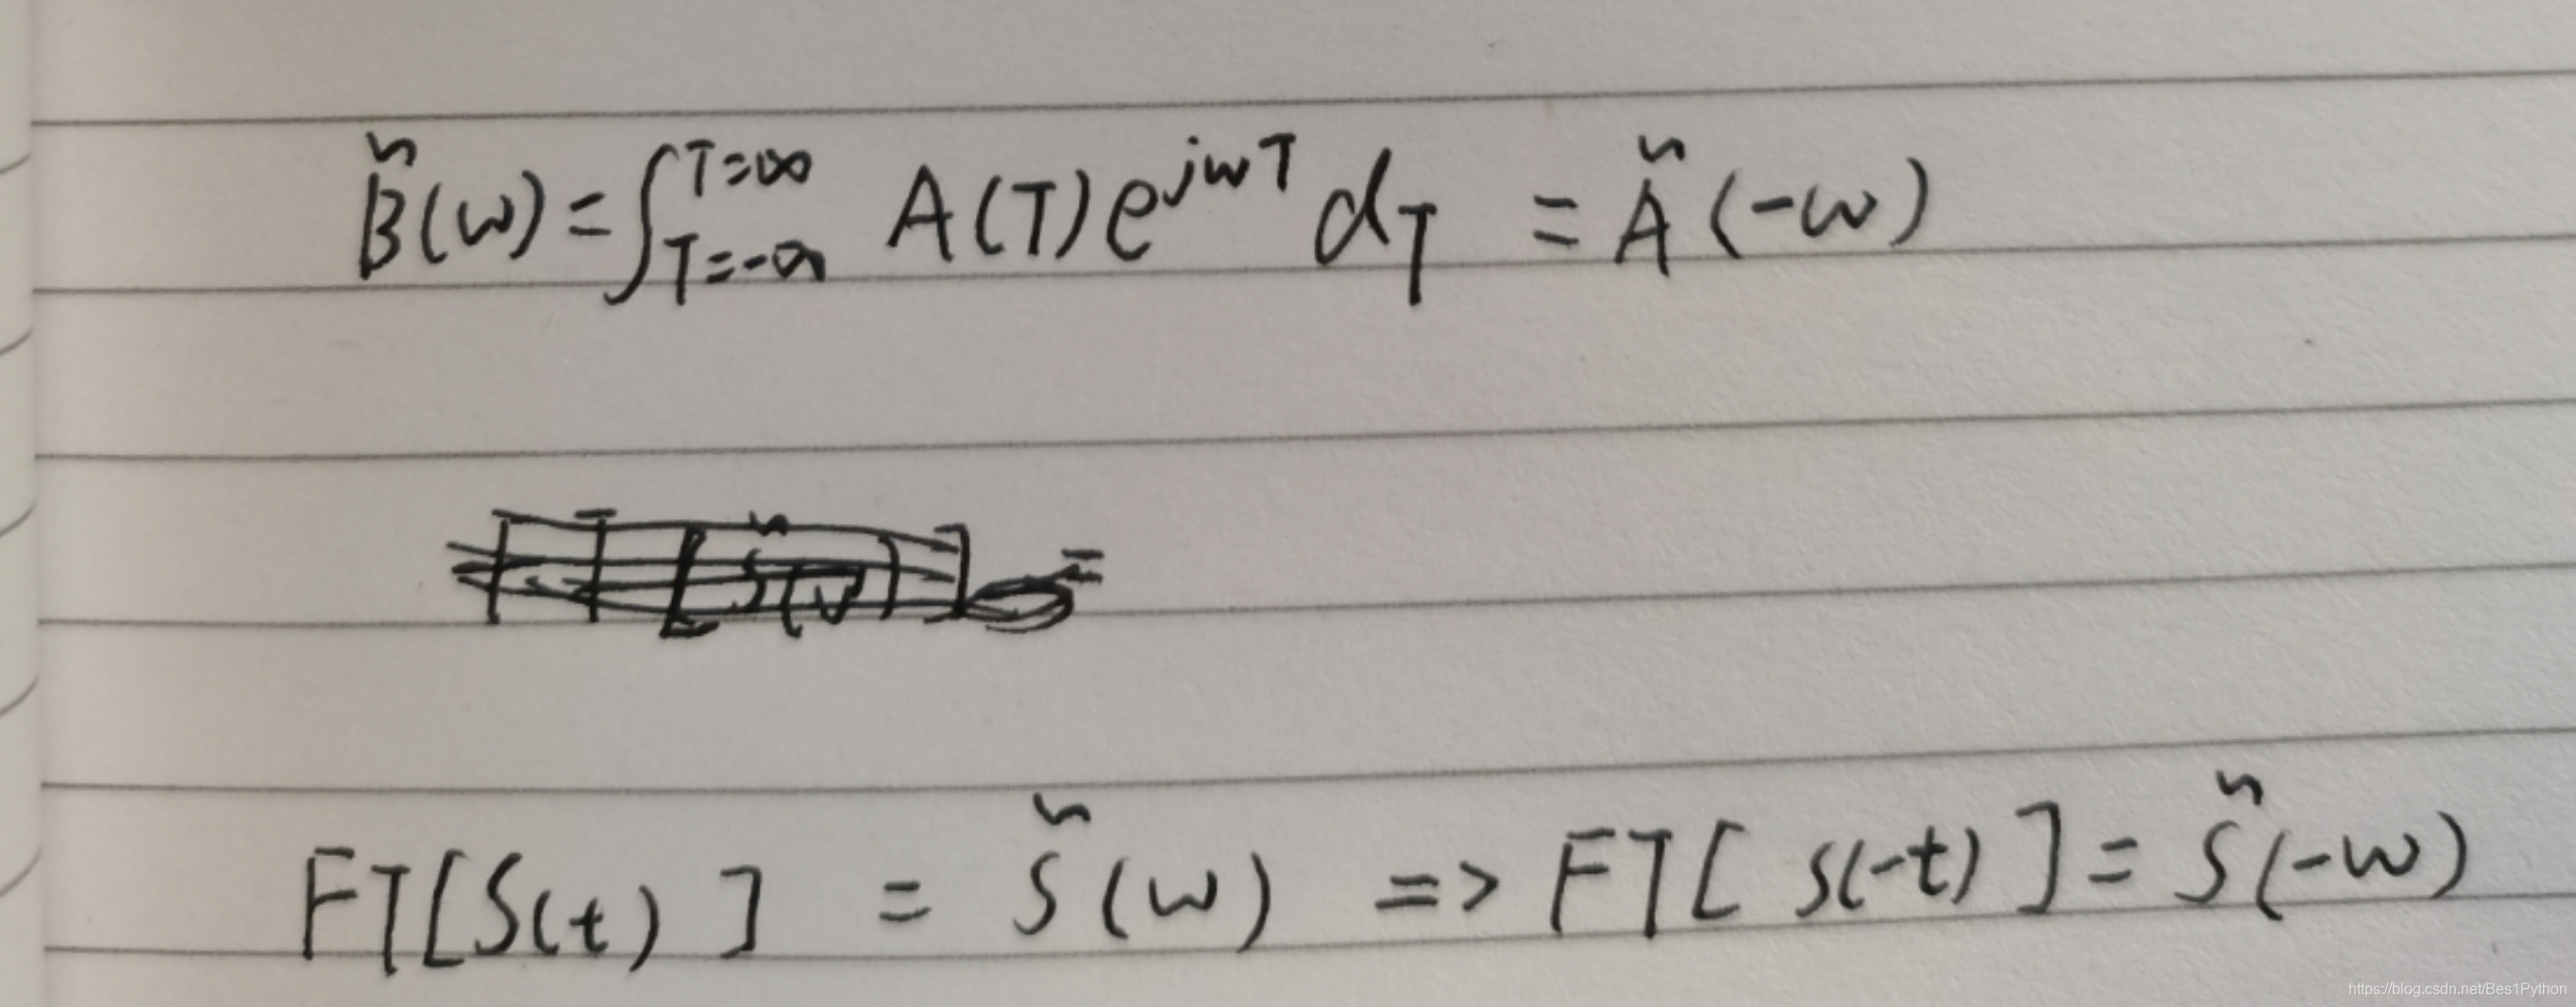 B̃(w) = ∫_{T=-∞}^{T=∞} A(T) e^{jwT} dT = Ã(-w)
FT[S(t)] = S̃(w) => FT[S(-t)] = S̃(-w)
https://blog.csdn.net/Bes1Python